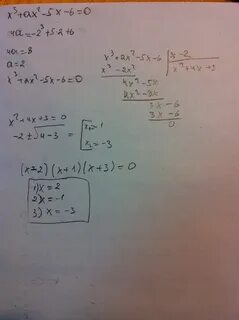 x³+ax²-5x-6=0
4a=-2³+5·2+6
4a=8
a=2
x³+2x²-5x-6=0
x³+2x²-5x-6 | x-2
x³-2x² | x²+4x+3
4x²-5x
4x²-8x
3x-6
3x-6
0
x²+4x+3=0
-2±√4-3 = [x₁=-1
x₂=-3
(x-2)(x+1)(x+3)=0
1) x=2
2) x=-1
3) x=-3